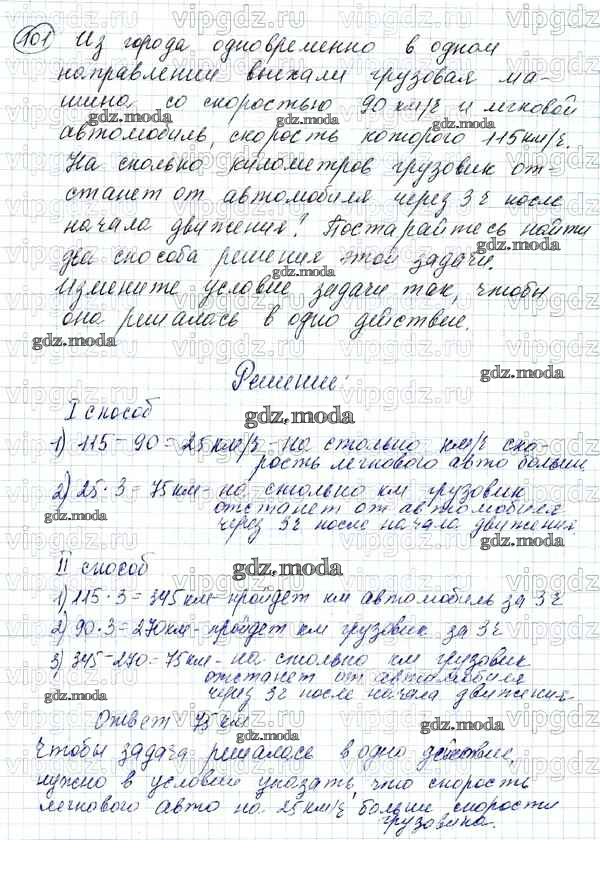 101 Из города одновременно в одном
направлении выехали грузовая ма-
шина со скоростью 90 км/ч и легковой
автомобиль, скорость которого 115 км/ч.
На сколько километров грузовик от-
станет от автомобиля через 3 ч после
начала движения? Постарайтесь найти
два способа решения этой задачи.
Измените условие задачи так, чтобы
она решалась в одно действие.
Решение:
I способ
1) 115 - 90 = 25 км/ч - на столько км/ч ско-
рость легкового авто больше
2) 25 · 3 = 75 км - на столько км грузовик
отстанет от автомобиля
через 3 ч после начала движения.
II способ
1) 115 · 3 = 345 км - пройдет км автомобиль за 3 ч
2) 90 · 3 = 270 км - пройдет км грузовик за 3 ч
3) 345 - 270 = 75 км - на столько км грузовик
отстанет от автомобиля
через 3 ч после начала движения.
Ответ 75 км
Чтобы задача решалась в одно действие,
нужно в условие указать, что скорость
легкового авто на 25 км/ч больше скорости
грузовика.